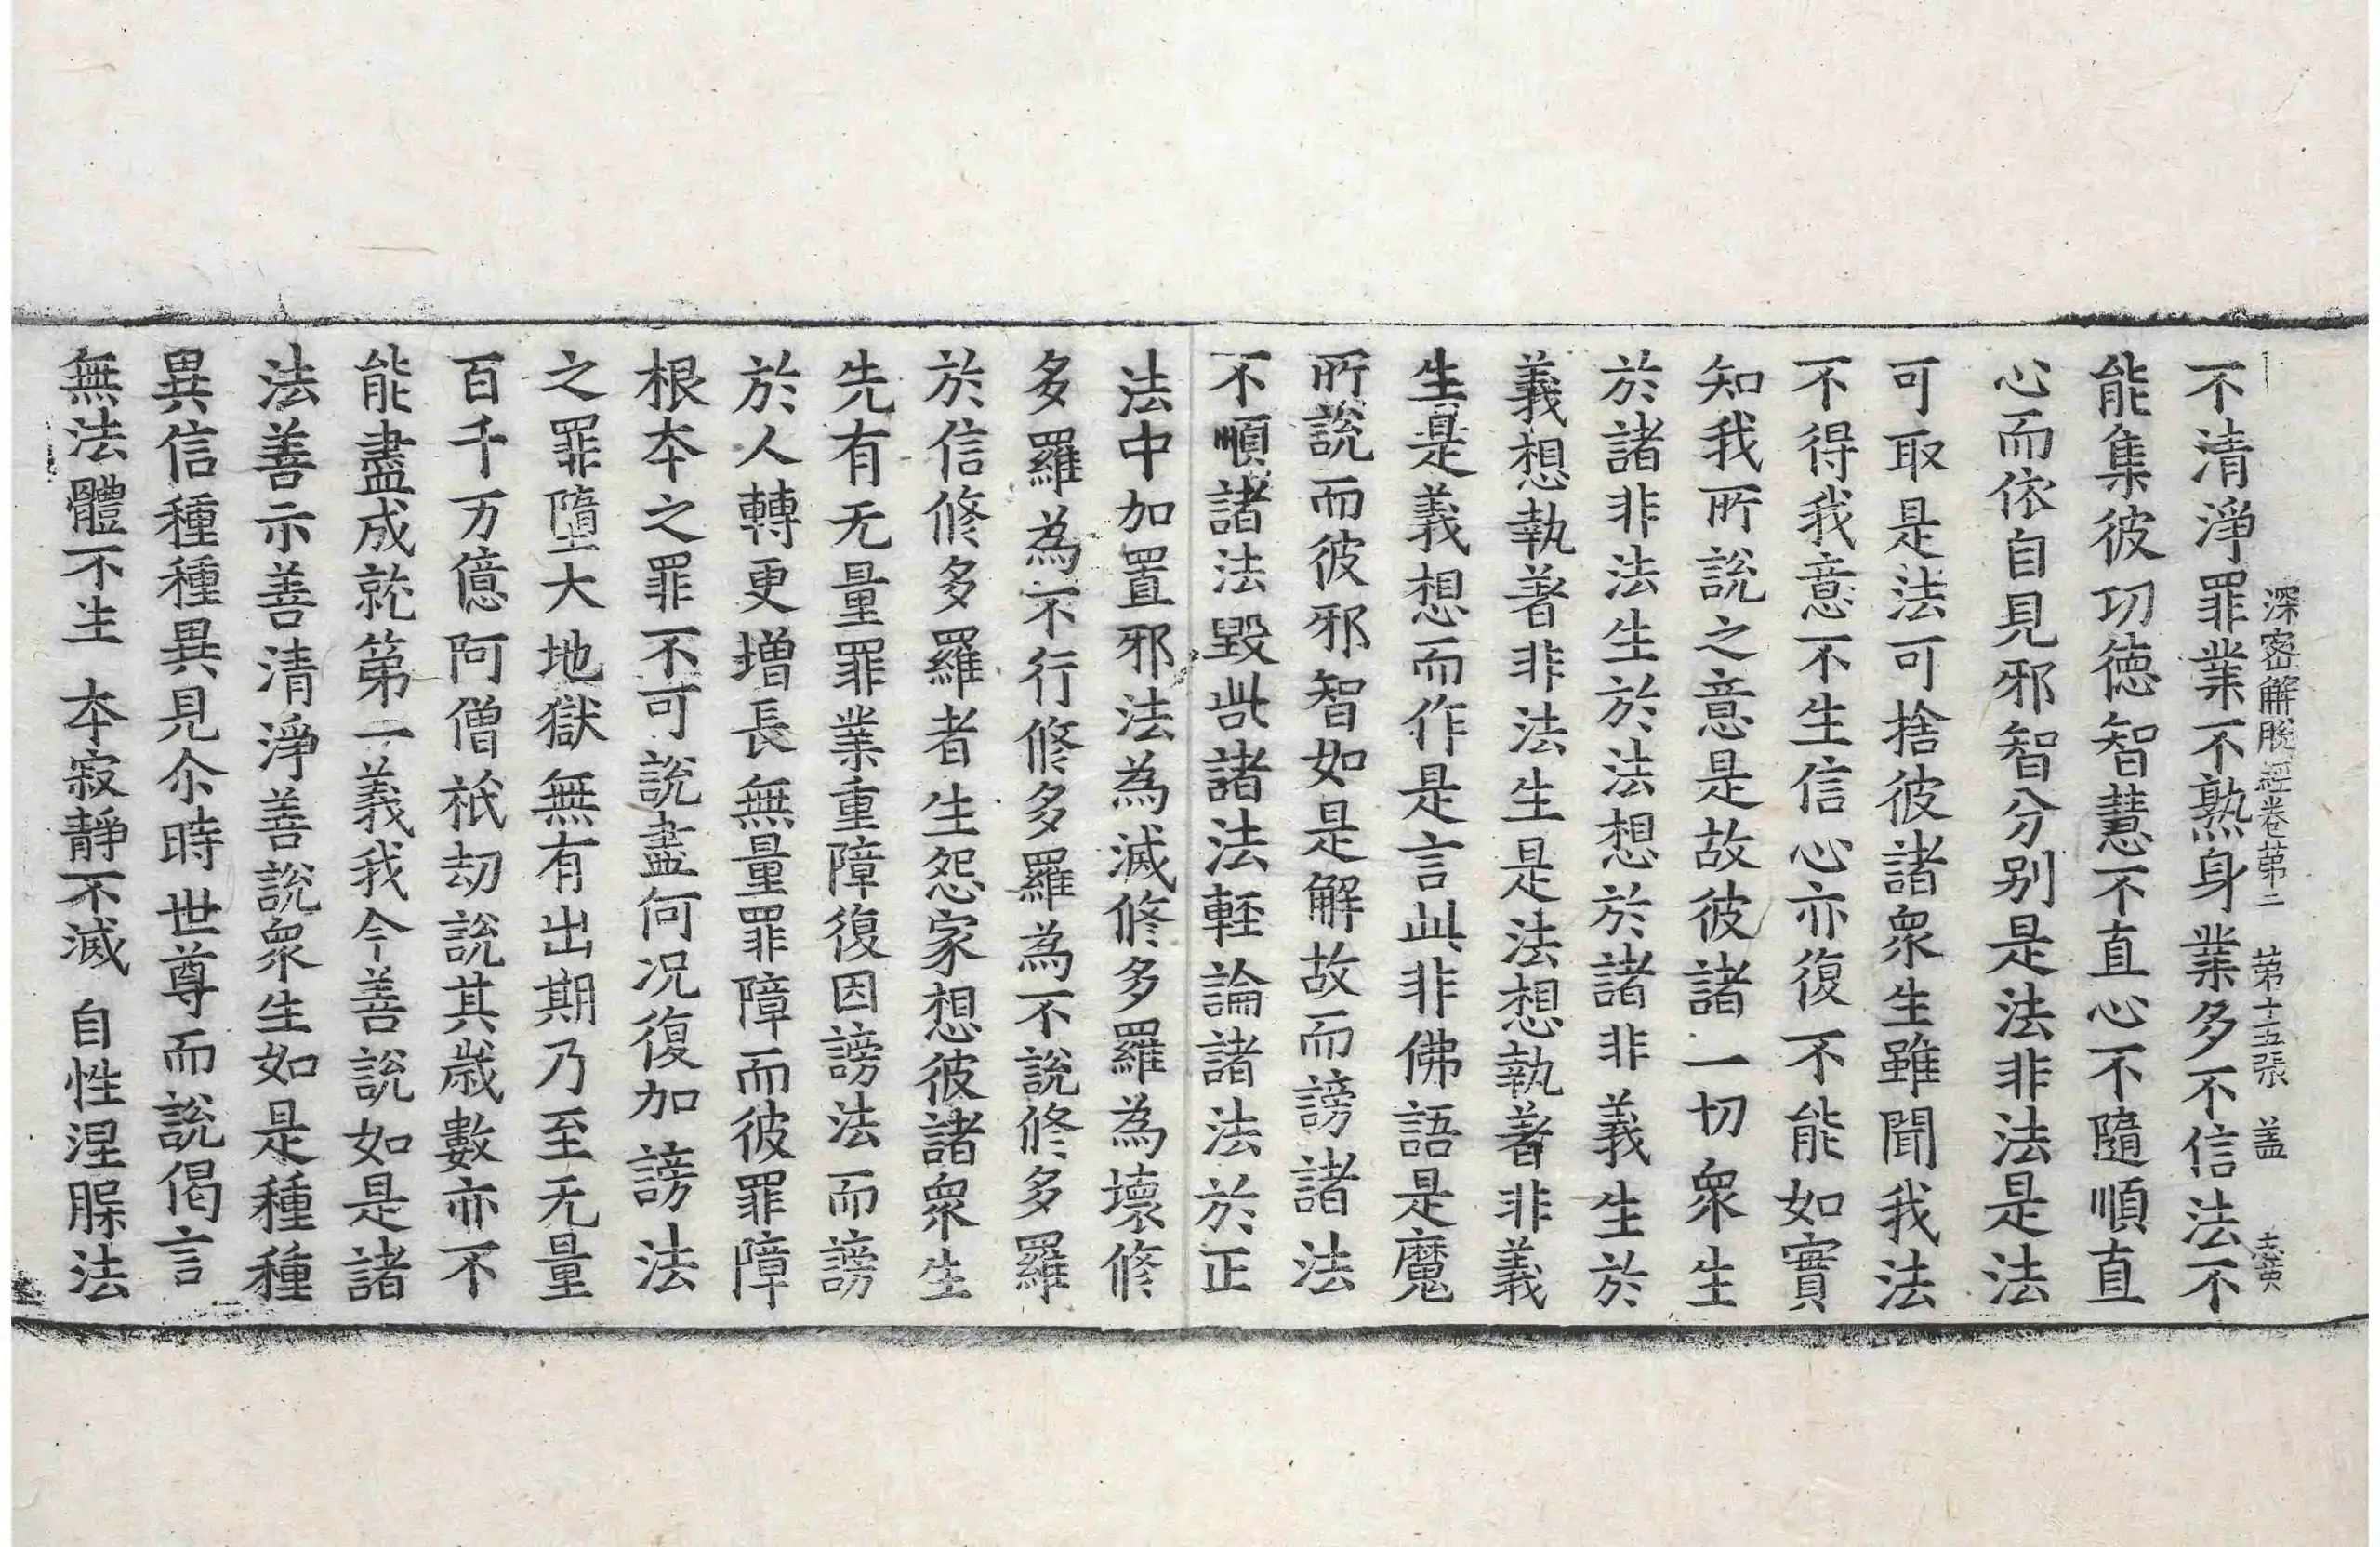 深密解脫經卷苐二 苐十五張 盖
不清淨罪業不熟身業多不信法不
能集彼功德智慧不直心不隨順直
心而依自見邪智分別是法非法是法
可取是法可捨彼諸衆生雖聞我法
不得我意不生信心亦復不能如實
知我所說之意是故彼諸一切衆生
於諸非法生於法想於諸非義生於
義想執著非法生是法想執著非義
生是義想而作是言此非佛語是魔
所說而彼邪智如是解故而謗諸法
不順諸法毀呰諸法輕論諸法於正
法中加置邪法為滅修多羅為壞修
多羅為不行修多羅為不說修多羅
於信修多羅者生怨家想彼諸衆生
先有无量罪業重障復因謗法而謗
於人轉更增長無量罪障而彼罪障
根本之罪不可說盡何况復加謗法
之罪墮大地獄無有出期乃至无量
百千万億阿僧祇劫說其歲數亦不
能盡成就第一義我今善說如是諸
法善示善清淨善說衆生如是種種
異信種種異見尒時世尊而說偈言
無法體不生 本寂靜不滅 自性涅槃法